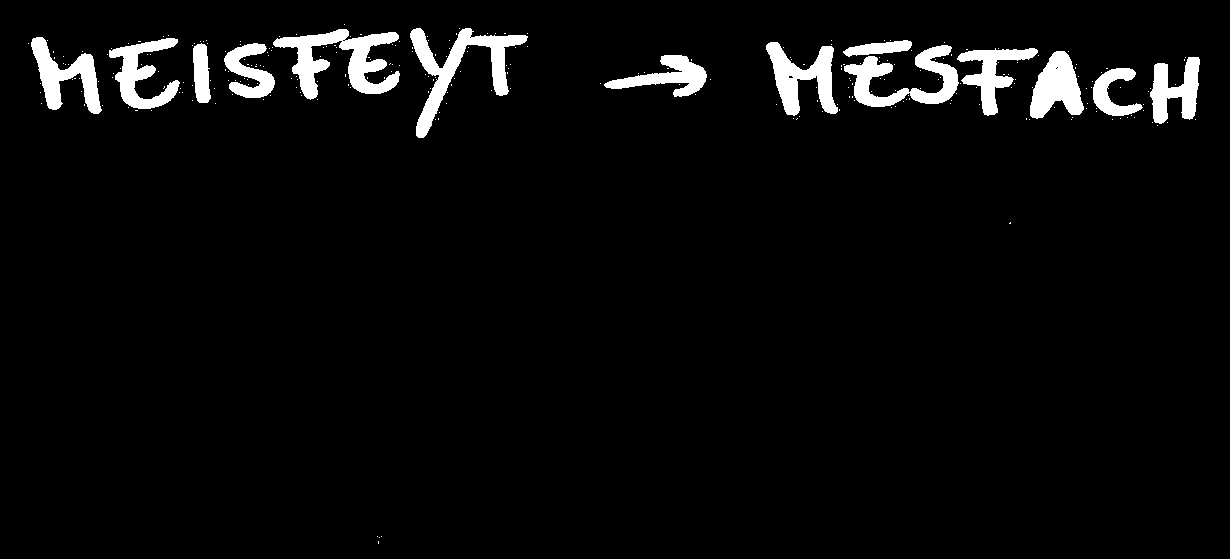 MEISFEYT → MESFACH